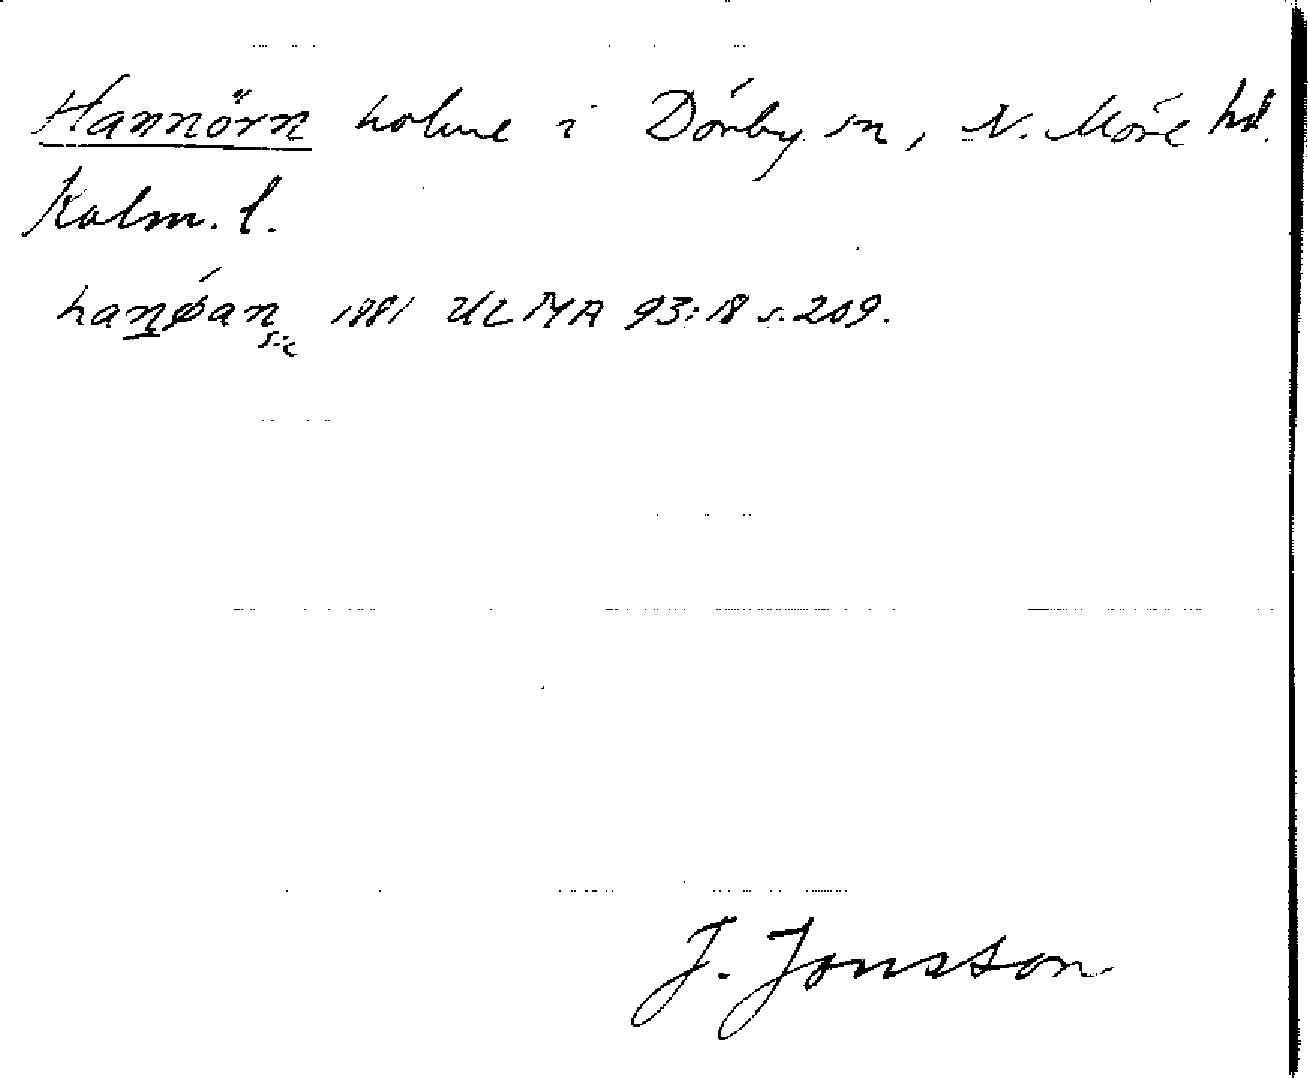 Hannörn holme i Dörby sn, N. Möre hd.
Kalm. l.
hanøan sic 1881 ULMA 93:18 s. 209.
J. Jonsson